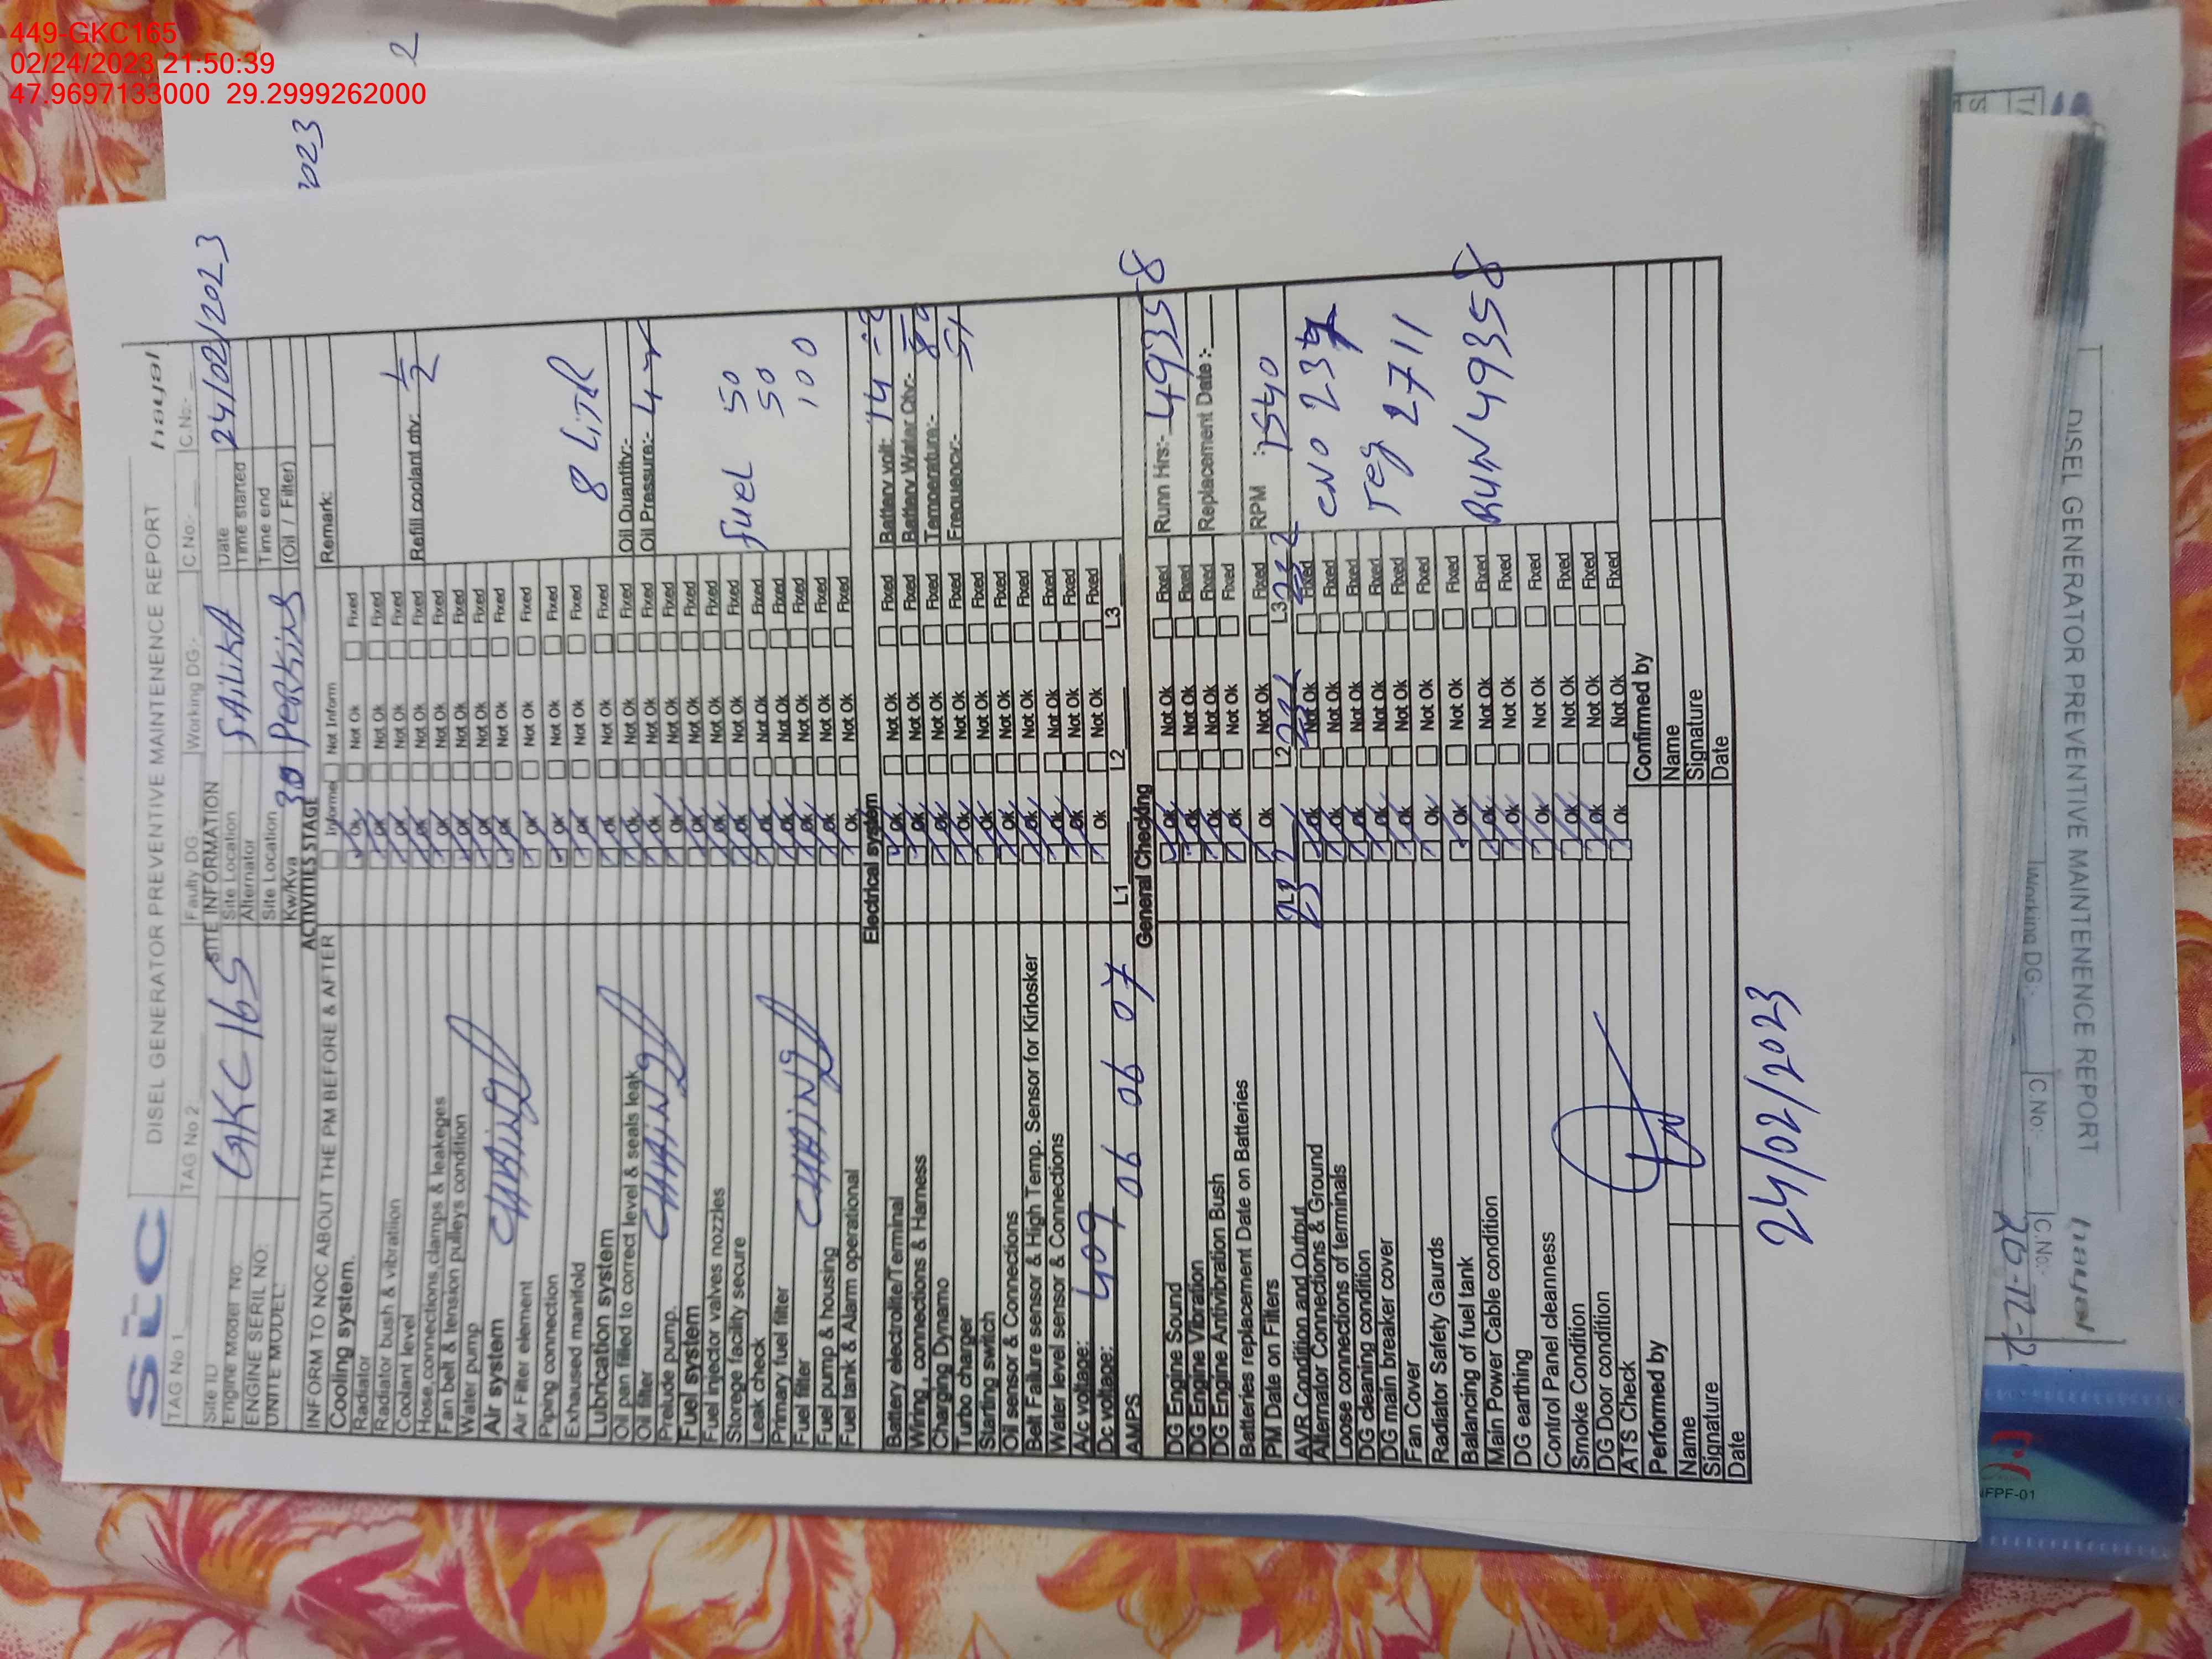 449-GKC165
02/24/2023 21:50:39
47.9697133000 29.2999262000
2
2023
SItC
DISEL GENERATOR PREVENTIVE MAINTENENCE REPORT
TAG No 1 TAG No 2 Faulty DG Working DG:- C.No:- C.No:-
SITE INFORMATION
Site ID GKC 165 Site Location SAILIKA Date 24/02/2023
Engine Model No. Alternator Time started
ENGINE SERIL NO: Site Location Time end
UNITE MODEL: Kw/Kva 30 PERKINS (Oil / Filter)
ACTIVITIES STAGE
INFORM TO NOC ABOUT THE PM BEFORE & AFTER Informed Not Inform Remark:
Cooling system. Ok Not Ok Fixed
Radiator Ok Not Ok Fixed
Radiator bush & vibratiion Ok Not Ok Fixed
Coolant level Ok Not Ok Fixed Refill coolant qty: 1/2
Hose,connections,clamps & leakeges Ok Not Ok Fixed
Fan belt & tension pulleys condition Ok Not Ok Fixed
Water pump Ok Not Ok Fixed
Air system Ok Not Ok Fixed
Air Filter element Ok Not Ok Fixed
Piping connection Ok Not Ok Fixed
Exhaused manifold Ok Not Ok Fixed 8 LiTR
Lubrication system Ok Not Ok Fixed
Oil pan filled to correct level & seals leak Ok Not Ok Fixed Oil Quantity:-
Oil filter Ok Not Ok Fixed Oil Pressure:- 4
Prelude pump. Ok Not Ok Fixed
Fuel system Ok Not Ok Fixed
Fuel injector valves nozzles Ok Not Ok Fixed
Storege facility secure Ok Not Ok Fixed Fuel 50
Leak check Ok Not Ok Fixed 50
Primary fuel filter Ok Not Ok Fixed 100
Fuel filter Ok Not Ok Fixed
Fuel pump & housing Ok Not Ok Fixed
Fuel tank & Alarm operational Ok Not Ok Fixed
Electrical system
Battery electrolite/Terminal Ok Not Ok Fixed Battery volt: 14
Wiring , connections & Harness Ok Not Ok Fixed Battery Water Qty:-
Charging Dynamo Ok Not Ok Fixed Temperature:-
Turbo charger Ok Not Ok Fixed Frequency:- 51
Starting switch Ok Not Ok Fixed
Oil sensor & Connections Ok Not Ok Fixed
Belt Failure sensor & High Temp. Sensor for Kirlosker Ok Not Ok Fixed
Water level sensor & Connections Ok Not Ok Fixed
A/c voltage: 409 Ok Not Ok Fixed
Dc voltage: Ok Not Ok Fixed
AMPS 06 06 07 L1 L2 L3
General Checking
DG Engine Sound Ok Not Ok Fixed Runn Hrs:- 49358
DG Engine Vibration Ok Not Ok Fixed
DG Engine Antivibration Bush Ok Not Ok Fixed Replacement Date :-
Batteries replacement Date on Batteries Ok Not Ok Fixed
PM Date on Filters Ok Not Ok Fixed RPM : 1540
AVR Condition and Output L2 L3
Alternator Connections & Ground Ok Not Ok Fixed CNO
Loose connections of terminals Ok Not Ok Fixed
DG cleaning condition Ok Not Ok Fixed Teg 2711
DG main breaker cover Ok Not Ok Fixed
Fan Cover Ok Not Ok Fixed
Radiator Safety Gaurds Ok Not Ok Fixed
Balancing of fuel tank Ok Not Ok Fixed RUN 49358
Main Power Cable condition Ok Not Ok Fixed
DG earthing Ok Not Ok Fixed
Control Panel cleanness Ok Not Ok Fixed
Smoke Condition Ok Not Ok Fixed
DG Door condition Ok Not Ok Fixed
ATS Check Ok Not Ok Fixed
Performed by Confirmed by
Name Name
Signature Signature
Date Date
24/02/2023
DISEL GENERATOR PREVENTIVE MAINTENENCE REPORT
Working DG:- C.No:- C.No:-
FPF-01